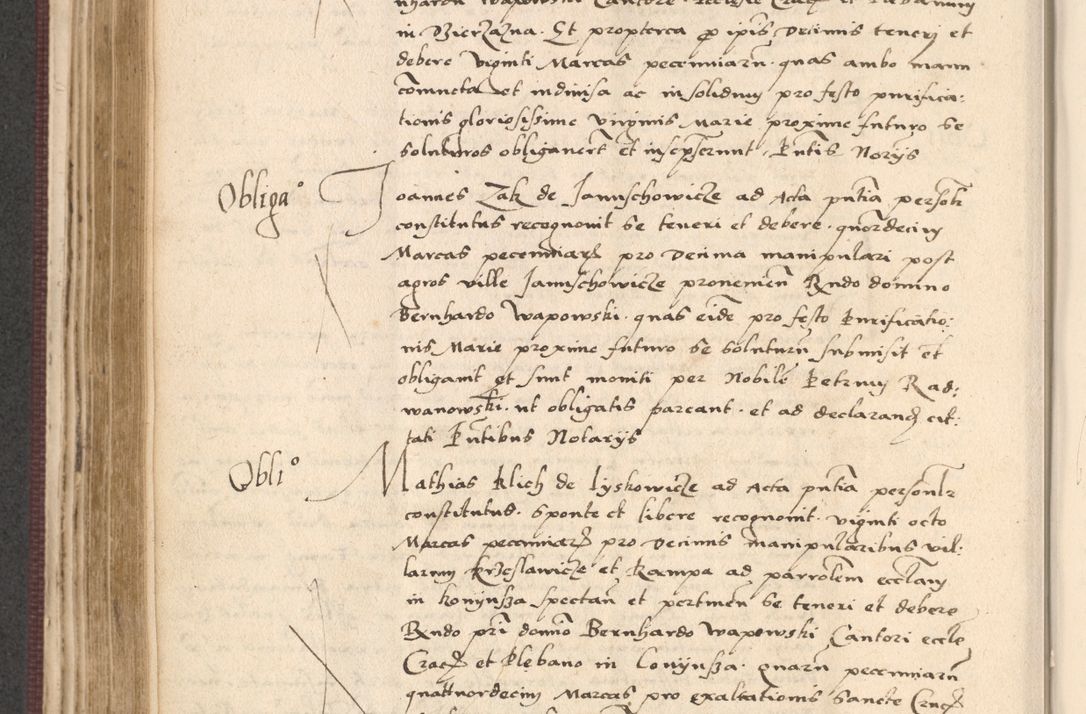 nhardu Wapowski Cantore Ecclie Cracz et Plebanum
in Dzierzazna. Et propterea p ipis Decimis teneri et
debere Viginti Marcas pecunniaru. quas ambo manu
coniuncta et indivisa ac insolidum pro festo purifica:
tionis gloriosissime Virginis Marie proxime futuro se
soluturos obligaverut et inscpserunt, Pntis Norijs
Obliga° Joannes Zak de Januschowicze ad Acta pntia personlr
constitutus recognovit se teneri et debere. quordecim
Marcas pecunniarz pro Decima manipulari post
agros ville Januschowicze provenien Rndo domino
Bernhardo Wapowski. quas eide pro festo Purificatio:
nis Marie proxime futuro se soluturu submisit et
obligavit et sunt moniti per Nobile Petrum Rad:
wanowski. ut obligatis pareant. et ad declarand cit:
tati Pntibus Notarijs
Obli° Mathias Klich de Lyskowicze ad Acta pntia personlr
constitutus. Sponte et libere recognovit. viginti octo
Marcas pecunniarz pro Decimis manipularibus vil:
larum Krzeslawicze et Kampa ad parrolem eccliam
in Konynsza spectan et pertinen se teneri et debere
Rndo pri domno Bernhardo Wapowski Cantori eccle
Cracz et Plebano in Conynsza. quaru pecunniaru
quattuordecim Marcas pro exaltationis Sancte Crucz